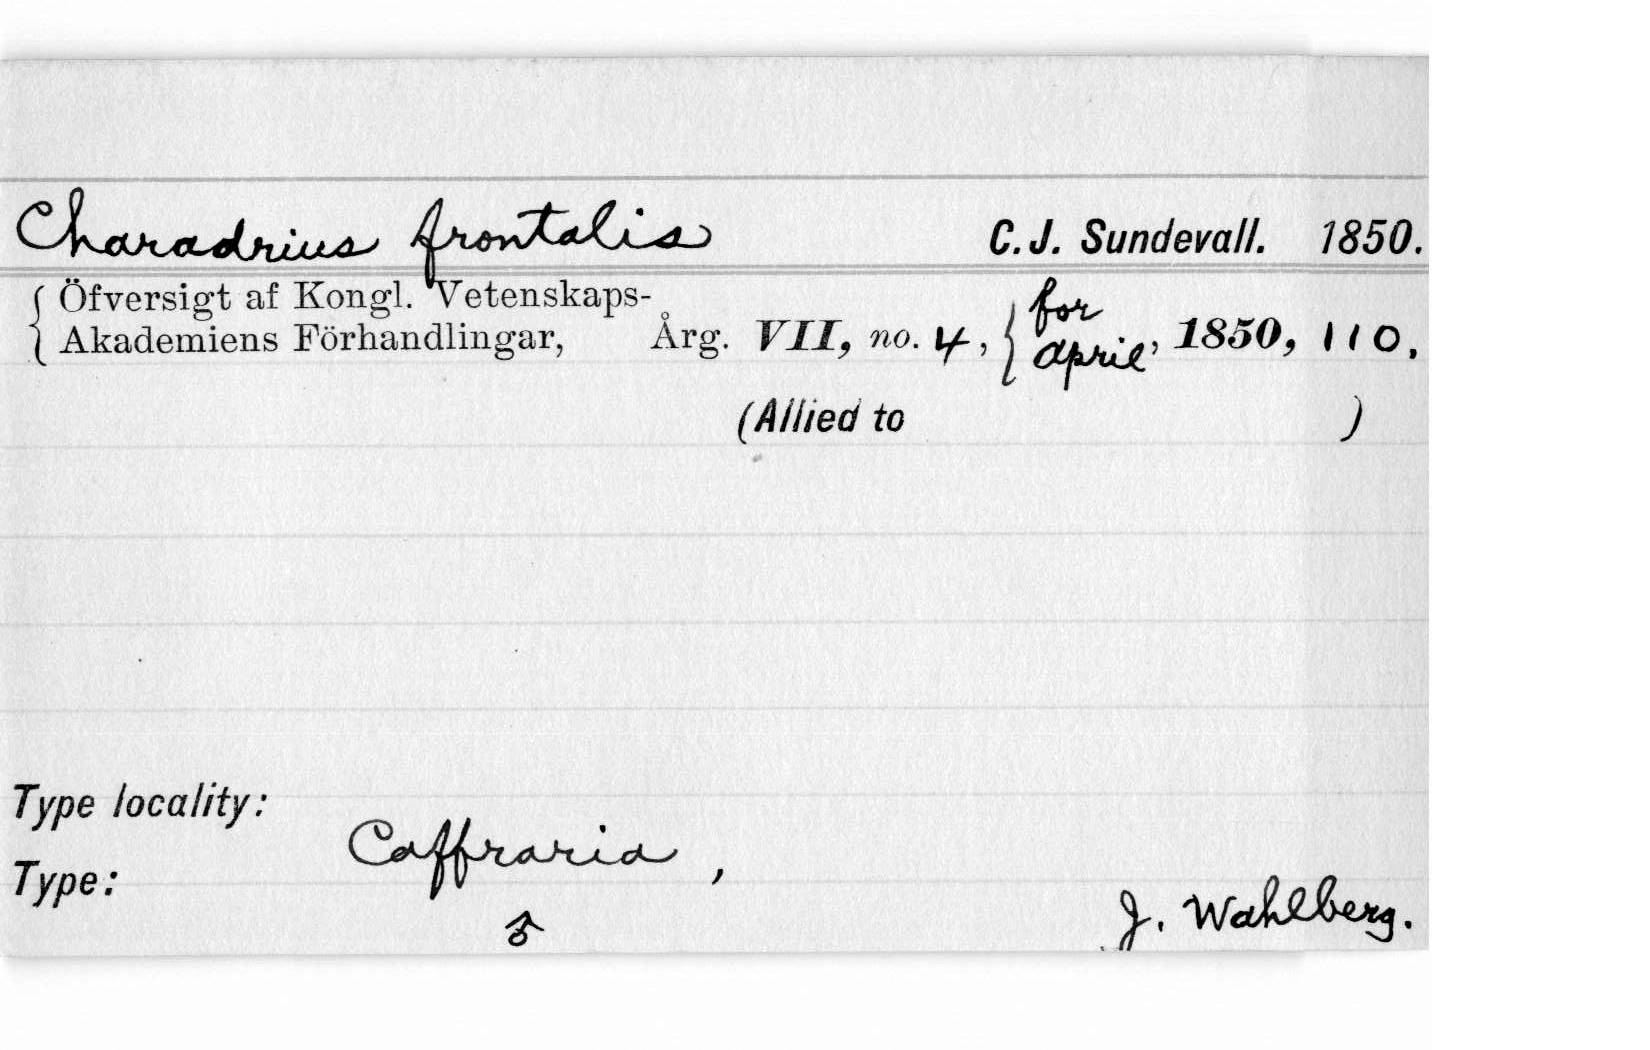 Charadrius frontalis C.J. Sundevall. 1850.
{ Öfversigt af Kongl. Vetenskaps-
Akademiens Förhandlingar, Årg. VII, no. 4, { for April, 1850, 110.
(Allied to )
Type locality:
Caffraria,
Type:
♂ J. Wahlberg.